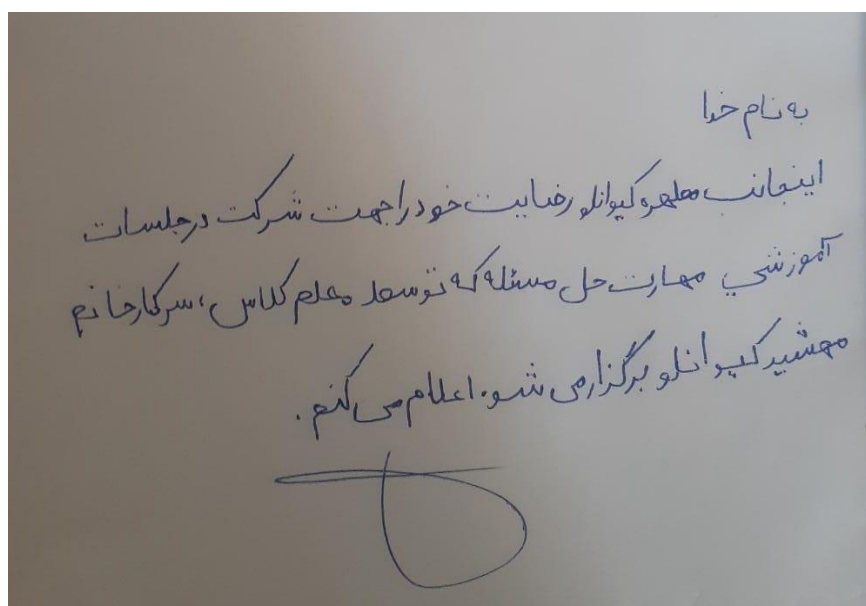 به نام خدا
اینجانب مطهره کیوانلو رضایت خود را جهت شرکت در جلسات
آموزشی مهارت حل مسئله که توسط معلم کلاس، سرکار خانم
مهشید کیوانلو برگزار می شود. اعلام می کنم.